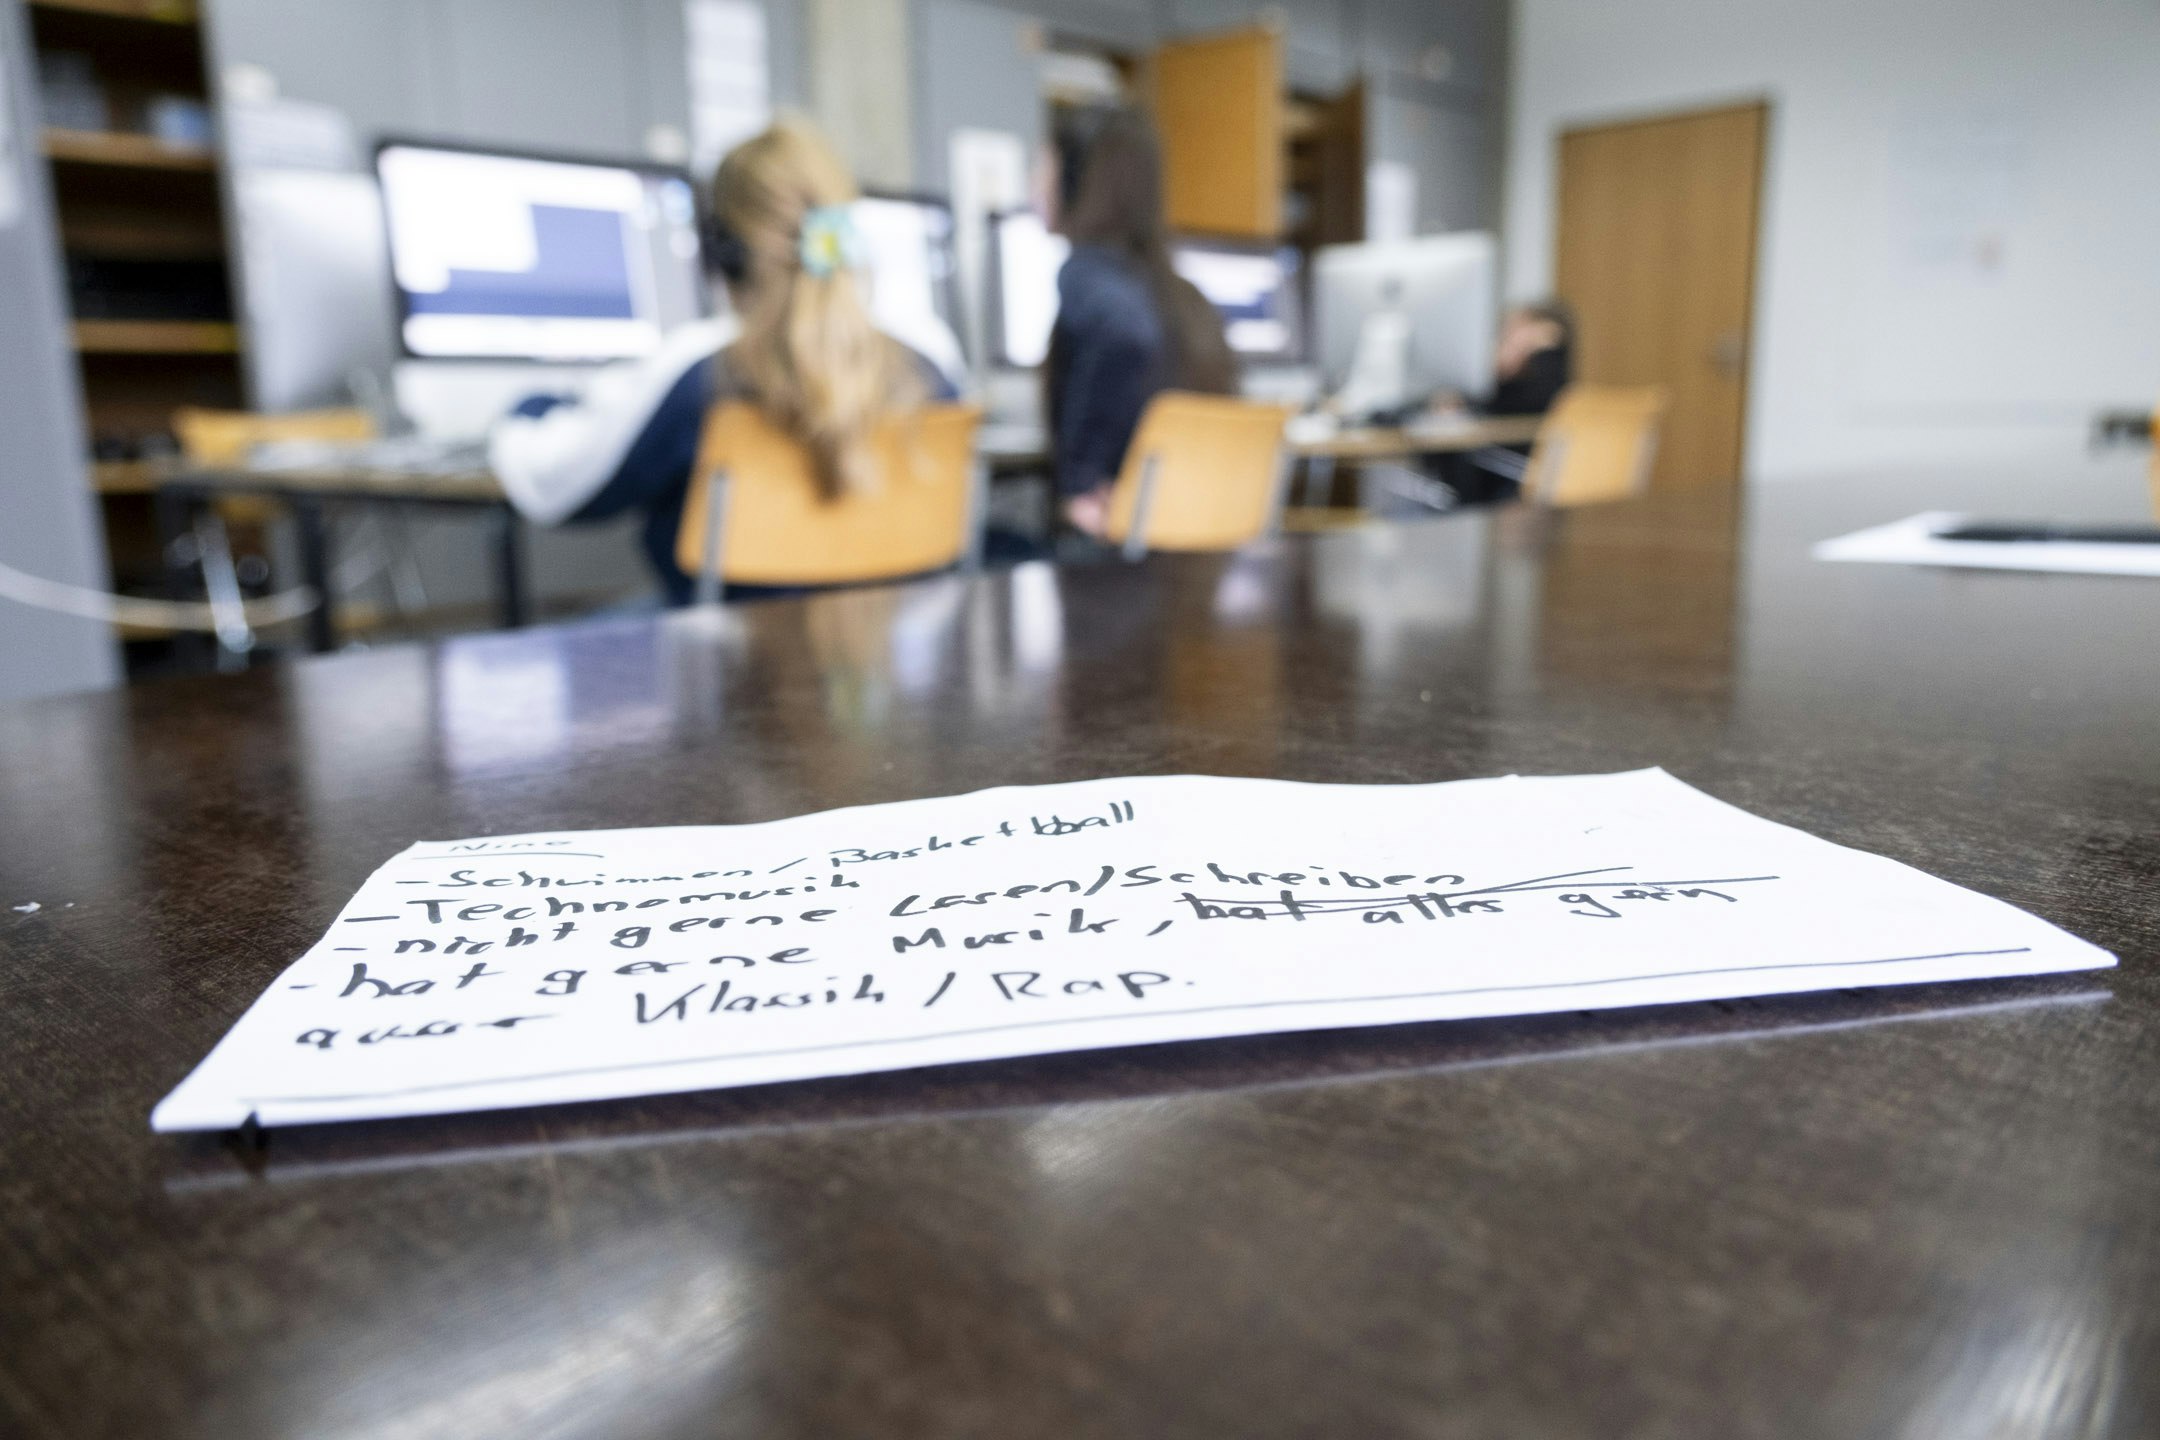 Nino
- Schwimmen / Basketball
- Technomusik
- nicht gerne Lesen/Schreiben
- hat gerne Musik, hat alles gern
ausser Klassik / Rap.